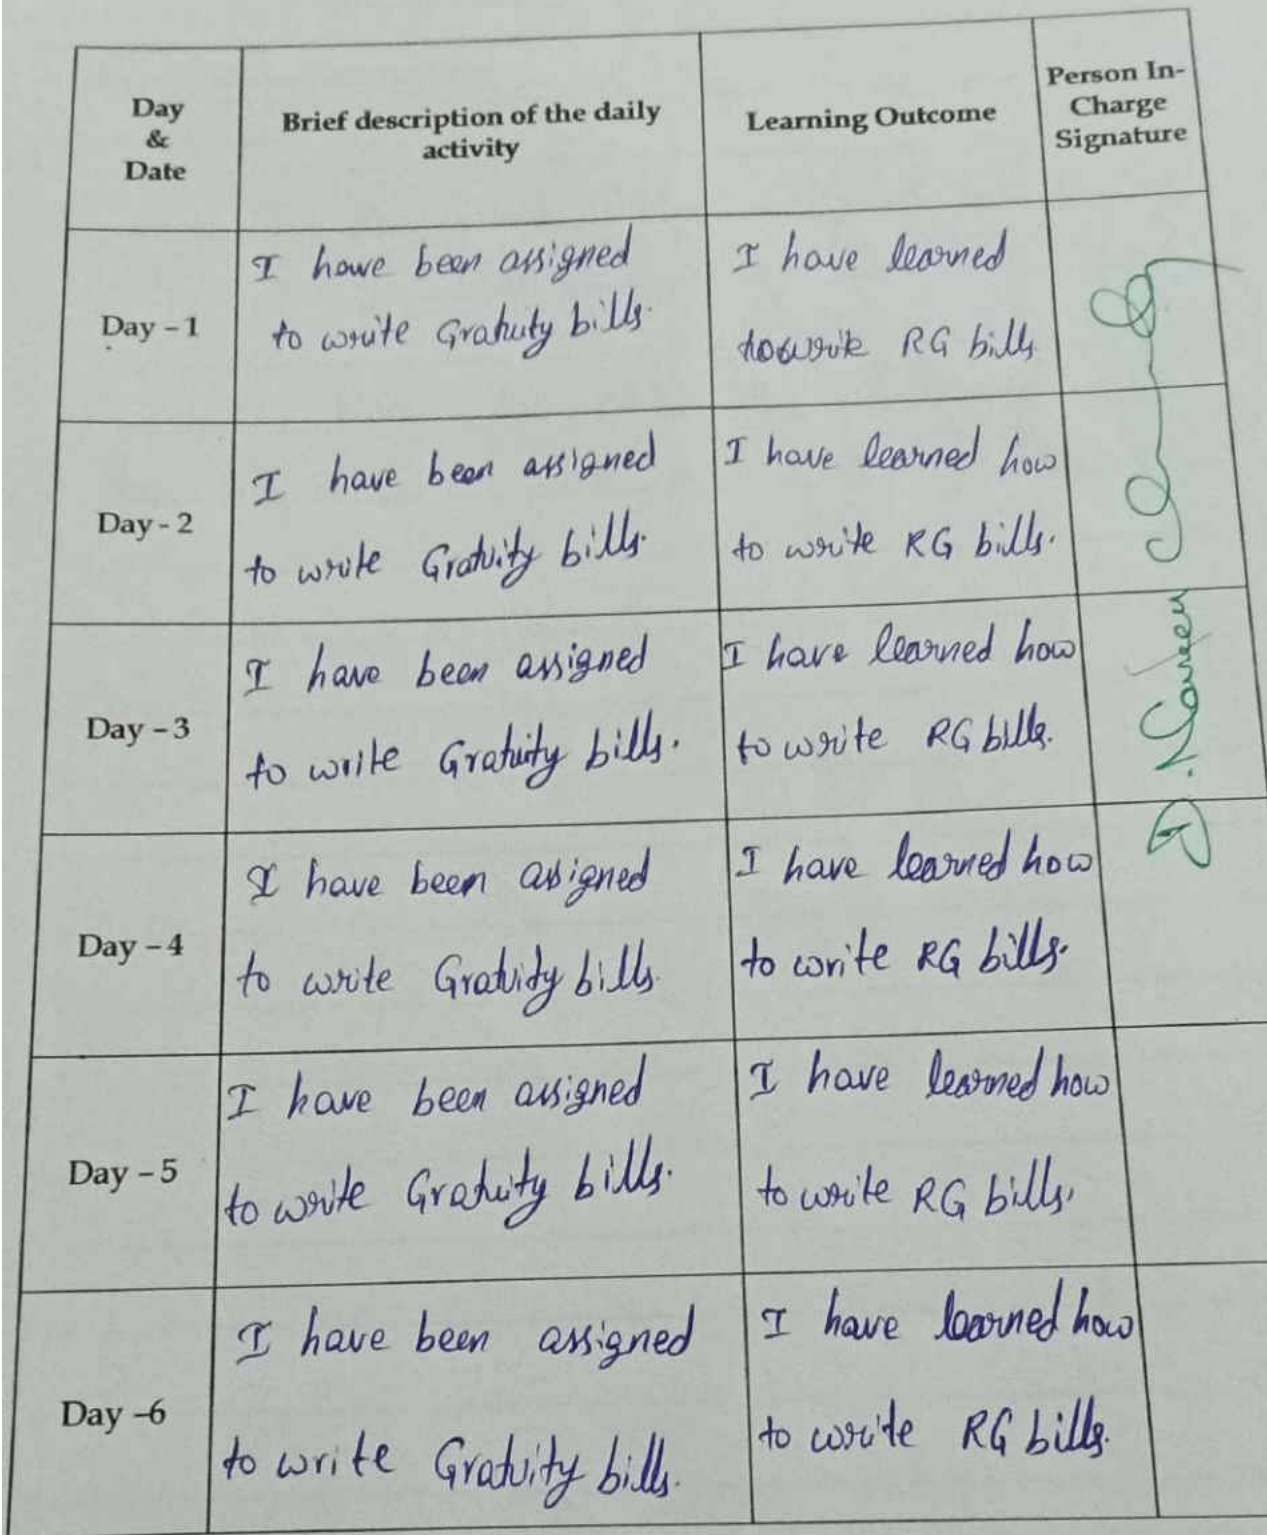 Day
&
Date
Brief description of the daily
activity
Learning Outcome
Person In-
Charge
Signature
Day - 1
I have been assigned
to write Gratuity bills.
I have learned
to write RG bills
Day - 2
I have been assigned
to write Gratuity bills.
I have learned how
to write RG bills.
Day - 3
I have been assigned
to write Gratuity bills.
I have learned how
to write RG bills.
D. Naveen
Day - 4
I have been assigned
to write Gratuity bills.
I have learned how
to write RG bills.
Day - 5
I have been assigned
to write Gratuity bills.
I have learned how
to write RG bills.
Day -6
I have been assigned
to write Gratuity bills.
I have learned how
to write RG bills.